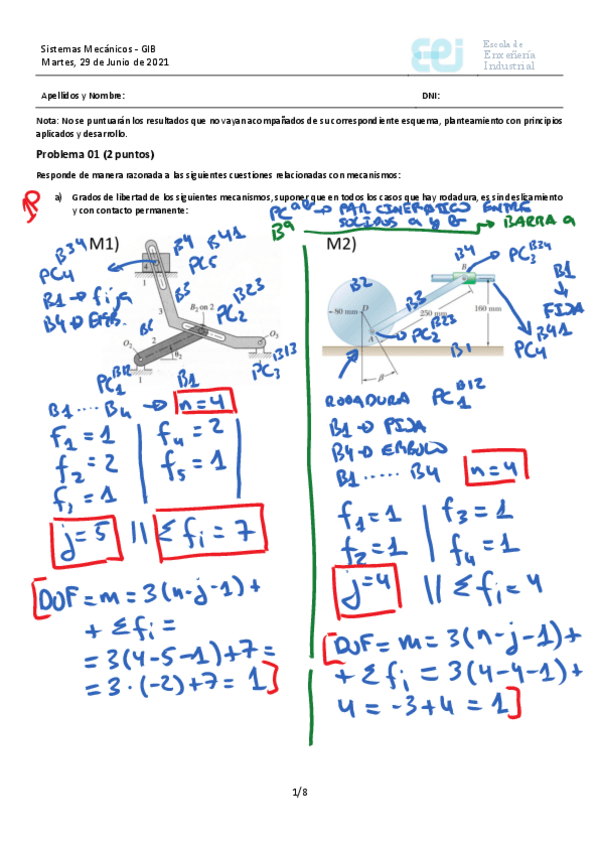 Sistemas Mecánicos - GIB
Martes, 29 de Junio de 2021
Escola de
Enxeñería
Industrial
Apellidos y Nombre: DNI:
Nota: No se puntuarán los resultados que no vayan acompañados de su correspondiente esquema, planteamiento con principios
aplicados y desarrollo.
Problema 01 (2 puntos)
Responde de manera razonada a las siguientes cuestiones relacionadas con mecanismos:
a) Grados de libertad de los siguientes mecanismos, suponer que en todos los casos que hay rodadura, es sin deslizamiento
y con contacto permanente:
PC ab → PAR CINEMATICO ENTRE
SOLIDOS a y b
Ba → BARRA a
M1)
B34
PC4
B4 B41
PC5
B1 → fija
B4 → Emb.
B3
B2 on 2
B23
PC2
O2
O3
θ2
B12
PC1
B1
B13
PC3
B1 .... B4 → n=4
f1 = 1 | f4 = 2
f2 = 2 | f5 = 1
f3 = 1
j=5 || Σfi = 7
DOF = m = 3(n-j-1)+
+ Σfi =
= 3(4-5-1)+7 =
= 3·(-2)+7 = 1
M2)
B4
PC3 B34
B2
B3
80 mm
D
B
250 mm
160 mm
A
β
PC2 B23
B1
B1
↓
FIJA
B41
PC4
RODADURA PC1 B12
B1 → FIJA
B4 → EMBOLO
B1 ..... B4 n=4
f1=1 | f3=1
f2=1 | f4=1
j=4 || Σfi=4
DOF = m = 3(n-j-1)+
+ Σfi = 3(4-4-1)+
4 = -3+4 = 1
1/8